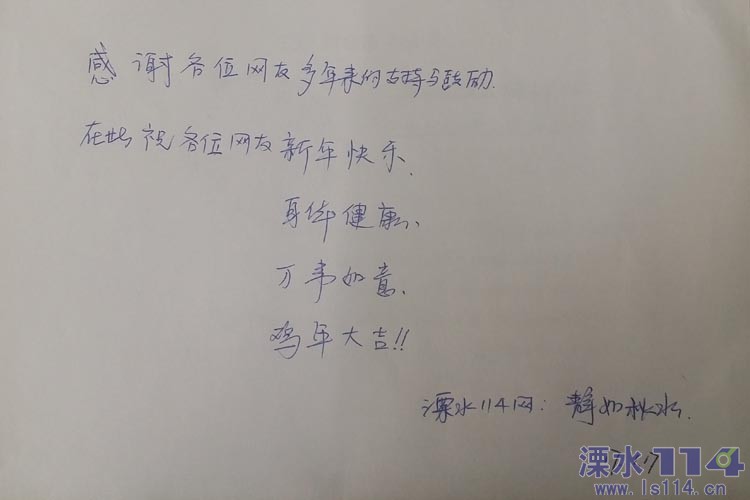 感谢各位网友多年来的支持与鼓励.
在此祝各位网友新年快乐、
身体健康、
万事如意、
鸡年大吉!!
溧水114网: 静如秋水.
溧水114
www.ls114.cn